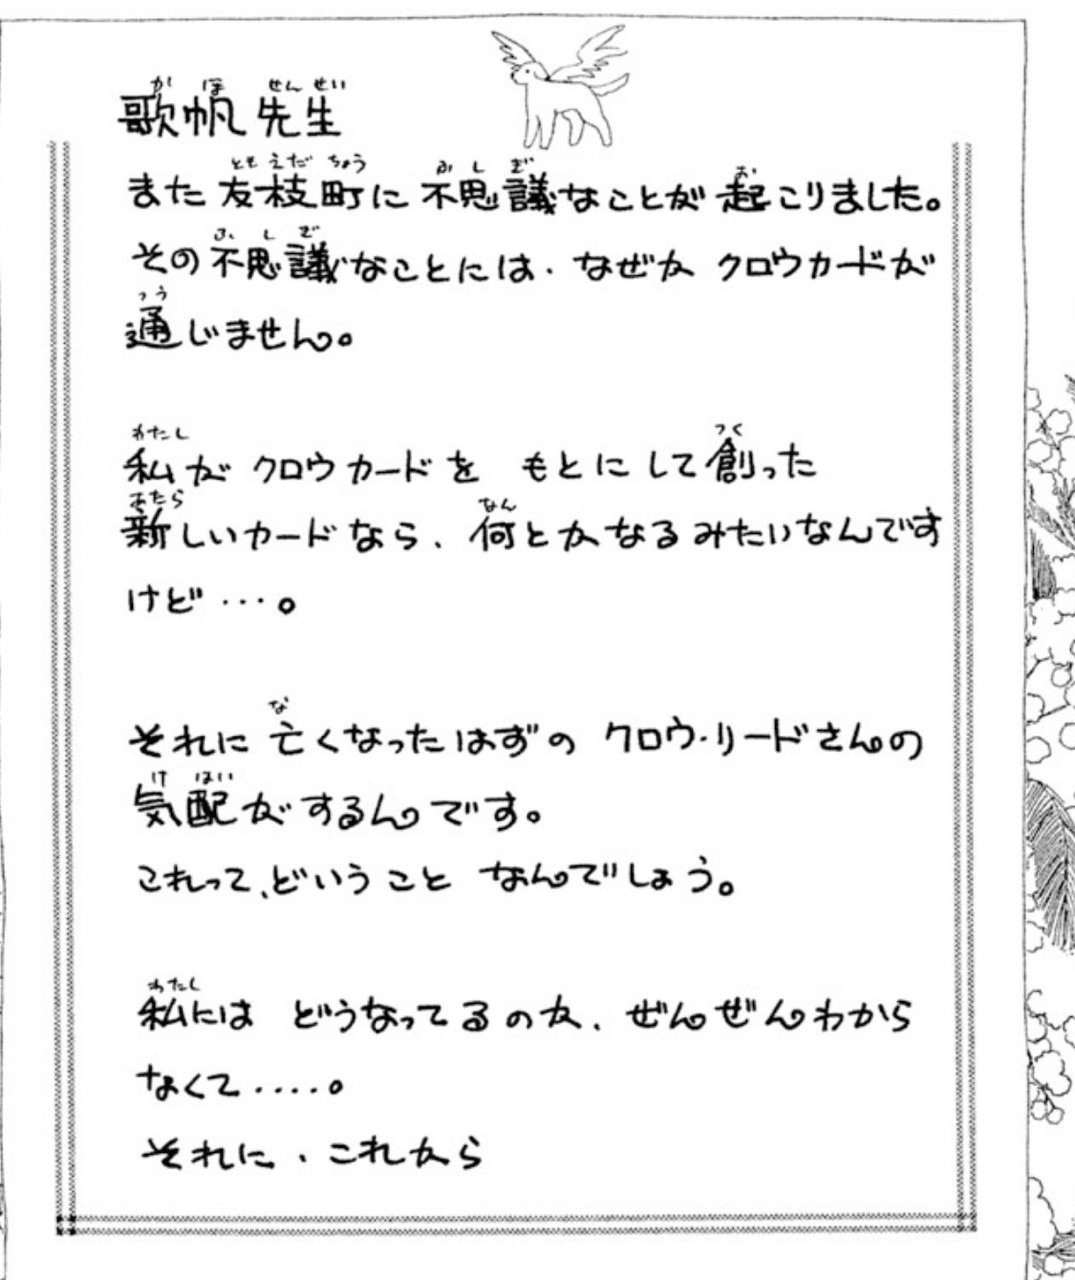 歌帆先生
また友枝町に不思議なことが起こりました。
その不思議なことには、なぜか クロウカードが
通じません。
私が クロウカードを もとにして創った
新しいカードなら、何とかなるみたいなんです
けど…。
それに 亡くなったはずの クロウ・リードさんの
気配がするんです。
これって、どういうこと なんでしょう。
私には どうなってるのか、ぜんぜんわから
なくて‥‥。
それに、これから